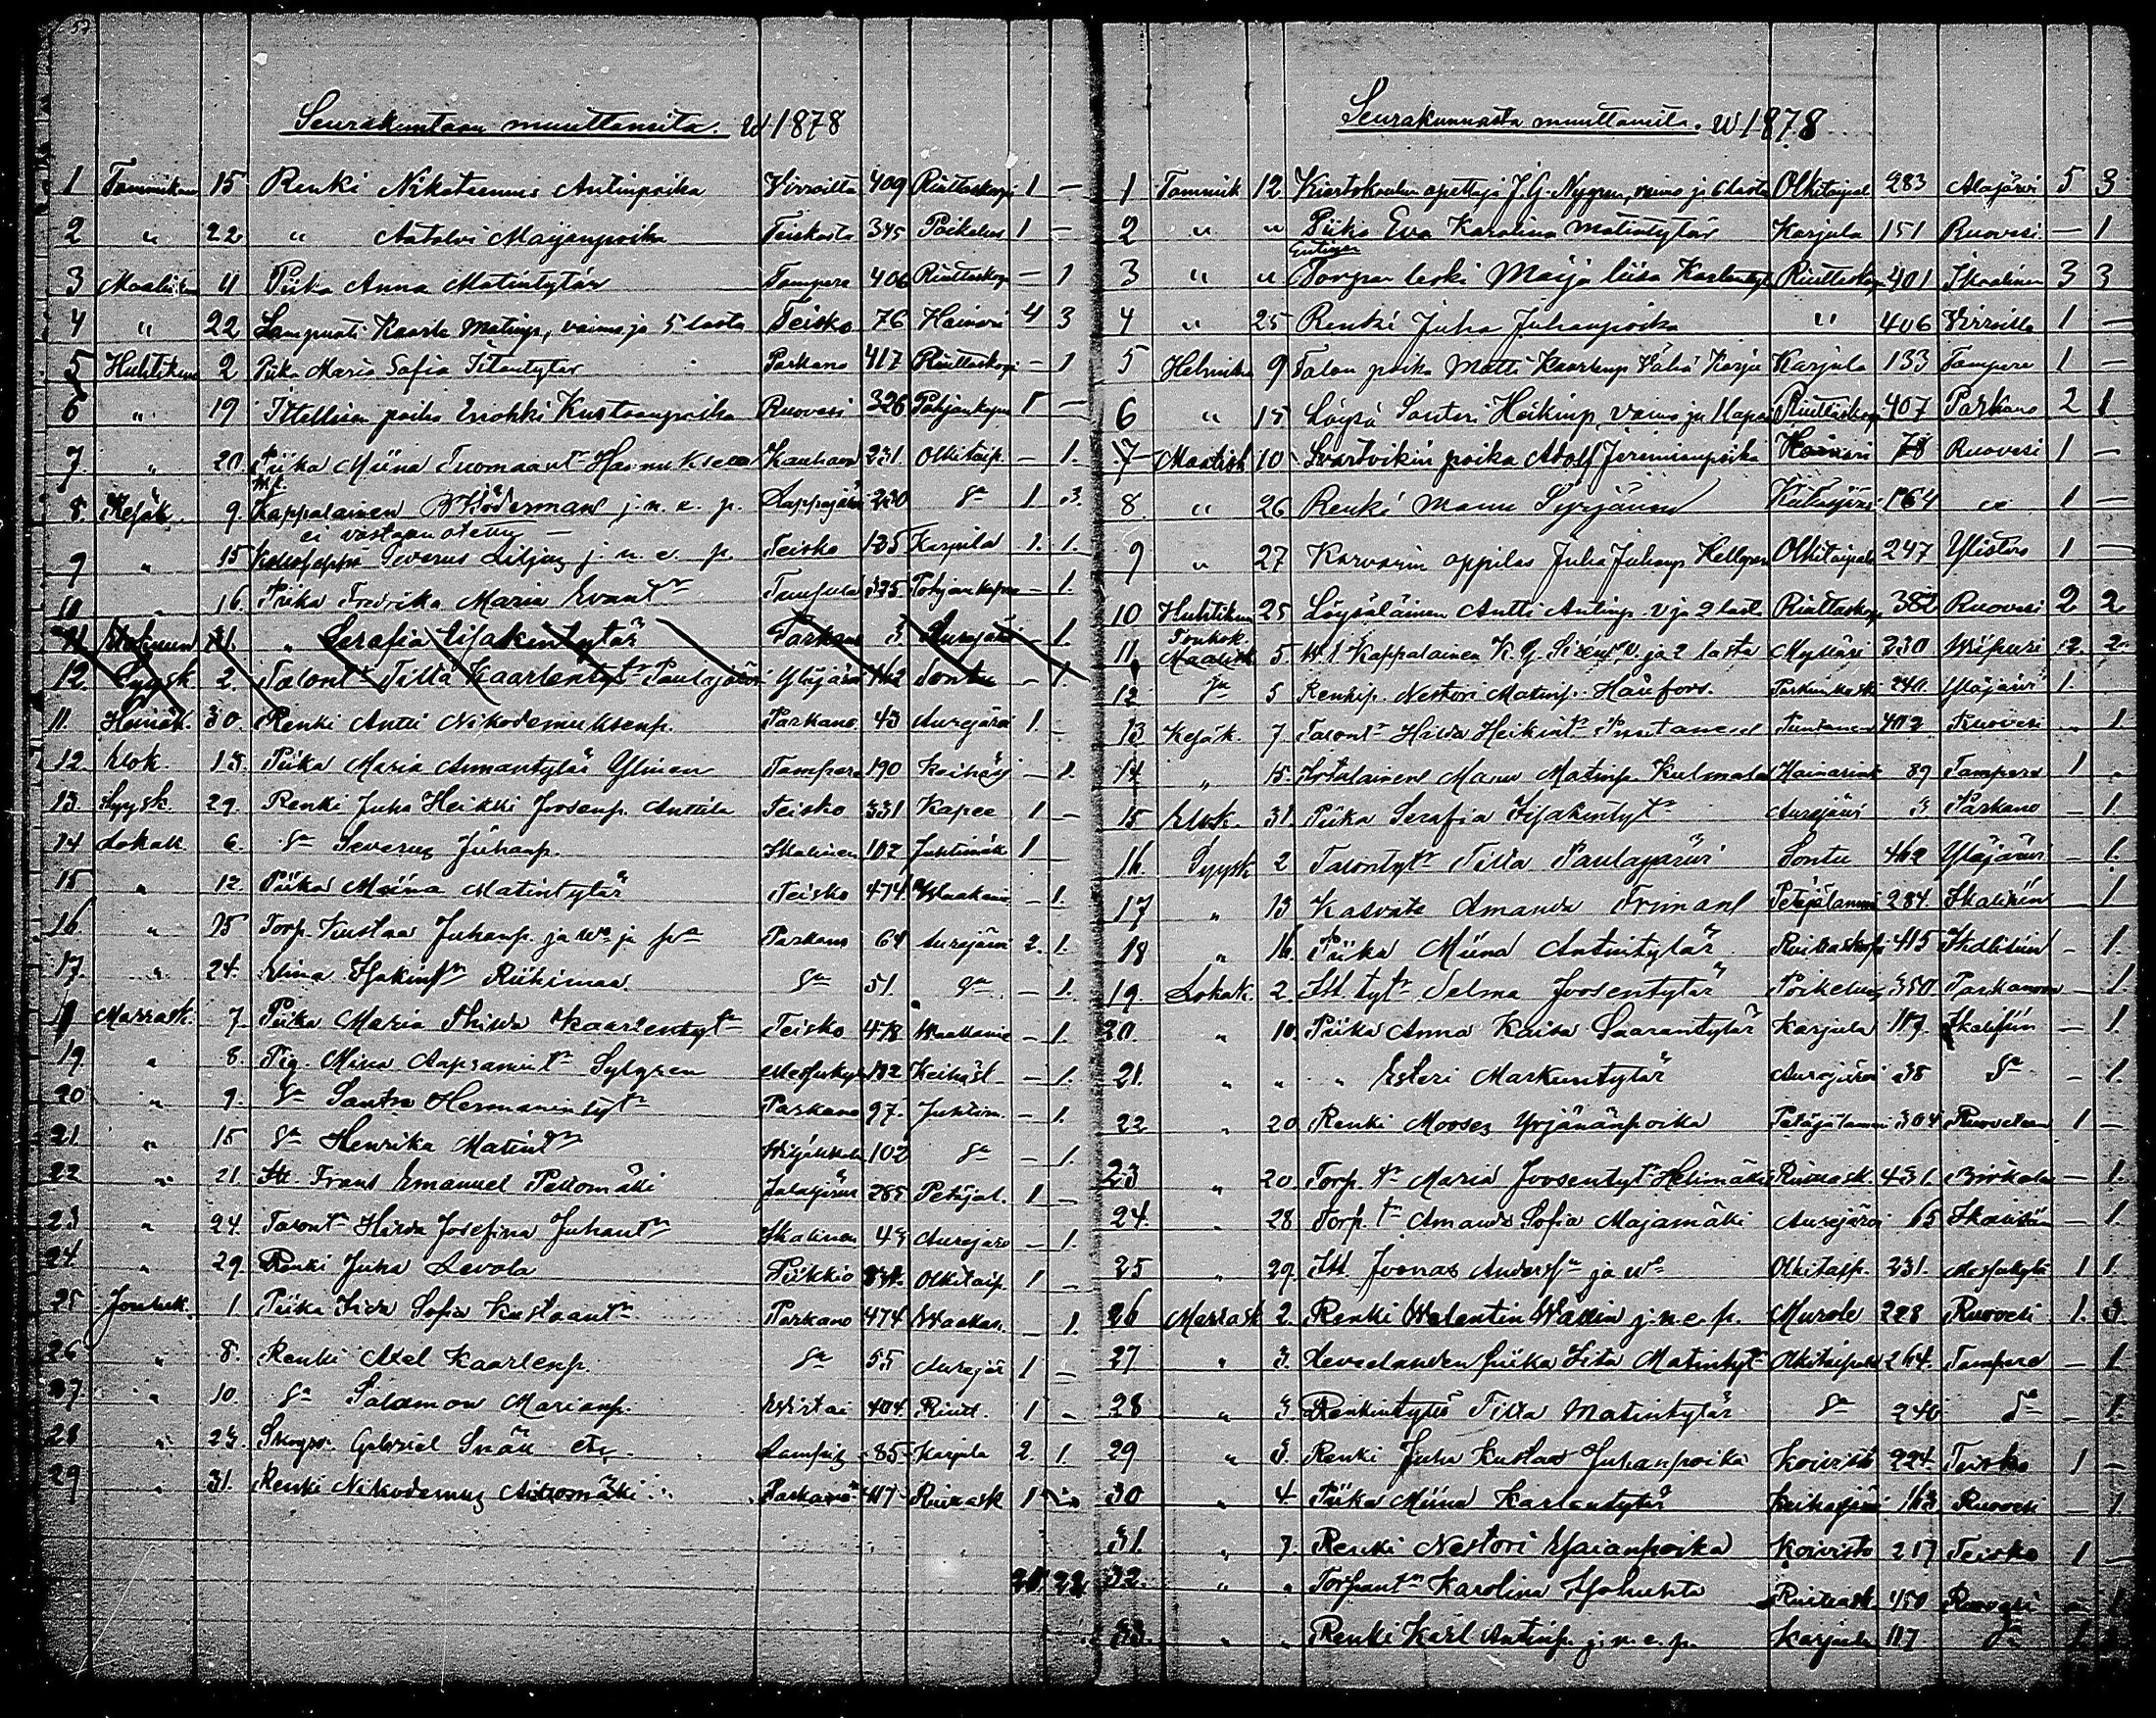 Seurakuntaan muuttaneita. W 1878
1 Tammikuu 15 Renki Nikodemus Antinpoika Virroilta 409 Riuttaskorpi 1 —
2 " 22 " Maijanpoika Teiskosta 345 Poikelus 1 —
3 Maalisk 4 Piika Anna Matintytär Tampere 406 Riuttaskorpi — 1
4 " 22 Lampuoti Kaarle Matinp, vaimo ja 5 lasta Teisko 76 Hainari 4 3
5 Huhtikuu 2 Piika Maria Sofia Parkano 417 Riuttaskorpi — 1
6 " 19 Itsellisen poika Kustaanpoika Ruovesi 326 Pohjankapee 1 —
7. " 20. Piika Miina Tuomaant 231. Olkitaip. — 1.
8. Kesäk. 9. Kappalainen j. n. e. p. Lappajärvi 230 Sa 1 3.
ei vastaanotettu —
9 " 15 Severus Liljus j. n. e. p. Teisko 135 Karjula 1. 1.
10 " 16. Piika Fredrika Maria 325 Pohjankapee — 1.
11 31. " Serafia Iisakintytär Parkano 3 Aurejärvi — 1.
12. Syysk. 2. Talont Tilda Kaarlentyt Paulajärvi Ylöjärvi 462 Sontu — 1.
11. Heinäk. 30. Renki Antti Nikodemuksenp. Parkano 43 Aurejärvi 1. —
12 Elok. 13. Piika Maria Amantytär Ylinen Tampere 190 Keihäsj — 1.
13. Syysk. 29. Renki Juha Heikki Joosenp. Anttila Teisko 331 Kapee 1 —
14 Lokak. 6. Sa Severus Juhanp. Ikalinen 102 Juhtimäk 1 —
15 " 12. Piika Miina Matintytär Teisko 474. — 1.
16 " 15 Torp. Kustaa Juhanp. ja Wo ja Parkano 64 Aurejärvi 2. 1.
17. " 24. Elina Riihimaa Sa 51. Sa — 1.
Marrask. 7. Piika Maria Kaarlentyt Teisko 478 — 1.
19. " 8. Pig. Miina Sylgren 102 Keihäsl — 1.
20 " 9. Sa Santra Hermannintyt Parkano 97. Juhtim. — 1.
21. " 15 Sa Henrika Matint 102 Sa — 1.
22 " 21. Itt. Frans Emanuel Peltomäki Jalasjärvi 285 Petäjäl. 1 —
23 " 24. Talont Hilda Josefina Juhant Ikalinen 43 Aurejärv — 1.
24. " 29. Renki Juha Levola Piikkiö 231. Olkitaip. 1 —
25 Jouluk. 1. Piika Iida Sofia Kustaant Parkano 474 Waakan. — 1.
26 " 8. Renki Axel Kaarlenp. Sa 55 Aurejär 1 —
27 " 10. Sa Salomon Marianp. Wirtai 404. Riutt. 1 —
28 " 23. Gabriel 85 Karjula 2. 1.
29 " 31. Renki Nikodemus Parkano 417 Riuttask 1 —
22
Seurakunnasta muuttaneita. W 1878
1 Tammik 12 Kiertokoulun opettaja J. G. Nygren, vaimo ja 6 lasta Olkitaipal 283 Alajärvi 5 3
2 " " Piika Eva Karolina Matintytär Karjula 151 Ruovesi — 1
Entinen
3 " " Torpan leski Maija Liisa Kaarlentyt Riuttaskorp 401 Ikaalinen 3 3
4 " 25 Renki Juha Juhanpoika " 406 Virroilla 1 —
5 Helmikuu 9 Talon poika Matti Kaarlenp Vähä Karju Karjula 133 Tampere 1 —
6 " 15 Löysä Santeri Heikinp, vaimo ja 1 lapsi Riuttaskorp 407 Parkano 2 1
7 Maalisk 10 Svartvikin poika Adolf Jeremiaanpoika Hainari 78 Ruovesi 1 —
8. " 26 Renki Manu Syrjänen 164 " 1 —
9 " 27 Karvarin oppilas Juha Juhanp Hellgren Olkitaipale 247 Ylistaro 1 —
10 Huhtikuu 25 Löysäläinen Antti Antinp. V ja 2 lasta Riuttaskorp 382 Ruovesi 2 2
Toukok.
11. Maalisk 5 W. t. Kappalainen K. G. Sirén, V. ja 2 lasta Mylläri 230 Wiipuri 2. 2.
12 Sa 5 Renkip. Nestori Matinp. Hånfors. Parkinkoski 240. Ylöjärvi 1.
13 Kesäk. 7 Talont Hilda Heikint Puntanen Puntanen 402 Ruovesi — 1.
14 " 15. Itsulainen Manu Matinp. Kulmala Hainarink 89 Tampere 1 —
15 Elok. 31. Piika Serafia Iisakintyt Aurejärvi 3 Parkano — 1.
16. Syysk 2 Talontyt Tilda Paulajärvi Sontu 462 Ylöjärvi — 1.
17 " 13 Kasvate Amanda Friman Petäjälammi 284. Ikalisiin — 1
18 " 16. Piika Miina Antintytär Riuttaskorpi 415 Ikalisiin — 1.
19. Lokak. 2. Itt. tyt Selma Joosentytär Poikelus 350. Parkanoon — 1
20. " 10. Piika Anna Kaisa Saarantytär Karjula 117. Ikalisiin — 1.
21. " " " Esteri Markuntytär Aurejärvi 38 Sa — 1.
22 " 20 Renki Mooses Yrjänänpoika Petäjälammi 304 Ruoveteen 1 —
23 " 20 Torp. t Maria Joosentyt Helinmäki Riuttask. 431. Pirkala — 1.
24. " 28 Torp. t Amanda Sofia Majamäki Aurejärvi 65 Ikalisiin — 1.
25 " 29 Itt. Joonas Anders ja wo Olkitaip. 231. Messukylä 1 1.
26 Marrask 2. Renki Walentin Wallin j. n. e. p. Murole 228 Ruovesi 1. 3.
27 " 3. piika Iita Matintyt Olkitaipale 264. Tampere — 1
28 " 3. Renkintytär Tilda Matintytär Sa 240 Sa — 1.
29 " 3. Renki Juha Kustaa Juhanpoika Koivisto 224. Teisko 1 —
30 " 4. Piika Miina Kaarlentytär Keihäsjärvi 163 Ruovesi — 1.
31. " 7. Renki Nestori Koivisto 217 Teisko 1 —
32. " " Torpant Karolina Riuttask. 450 Ruovesi — 1
33. " " Renki Karl Antinp. j. n. e. p. Karjula 117 Sa 1